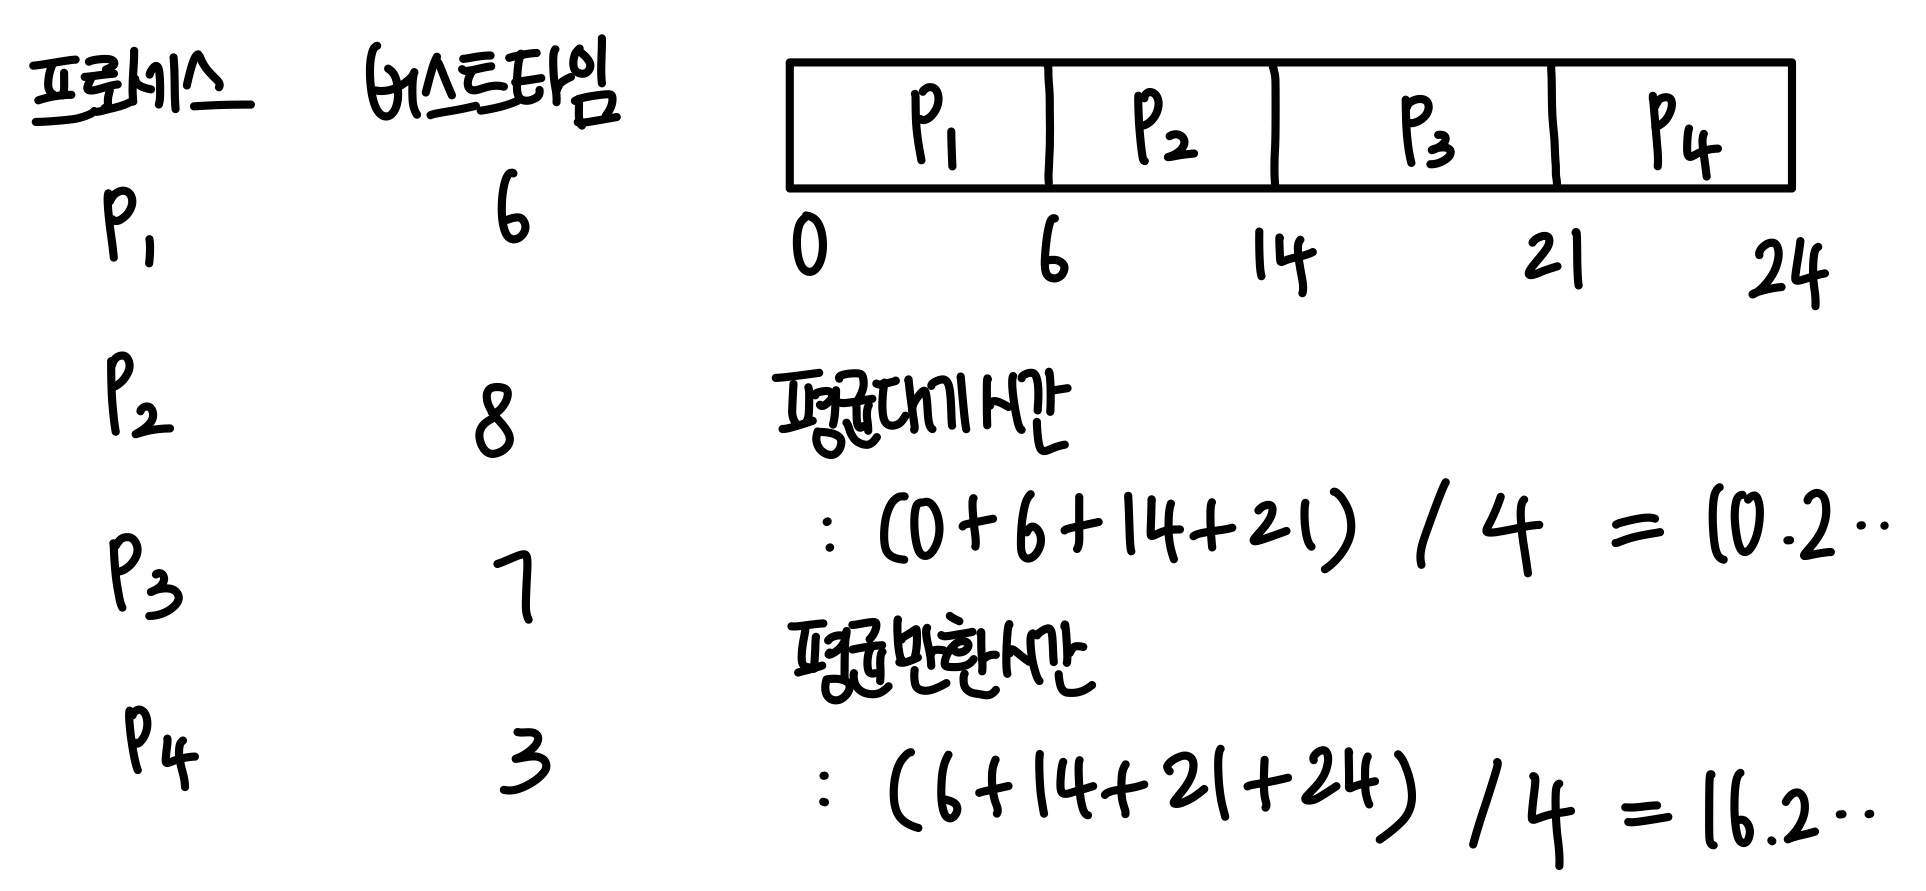 프로세스 버스트타임
P1 6
P2 8
P3 7
P4 3
P1 P2 P3 P4
0 6 14 21 24
평균대기시간
: (0+6+14+21) / 4 = 10.2..
평균반환시간
: (6+14+21+24) / 4 = 16.2..